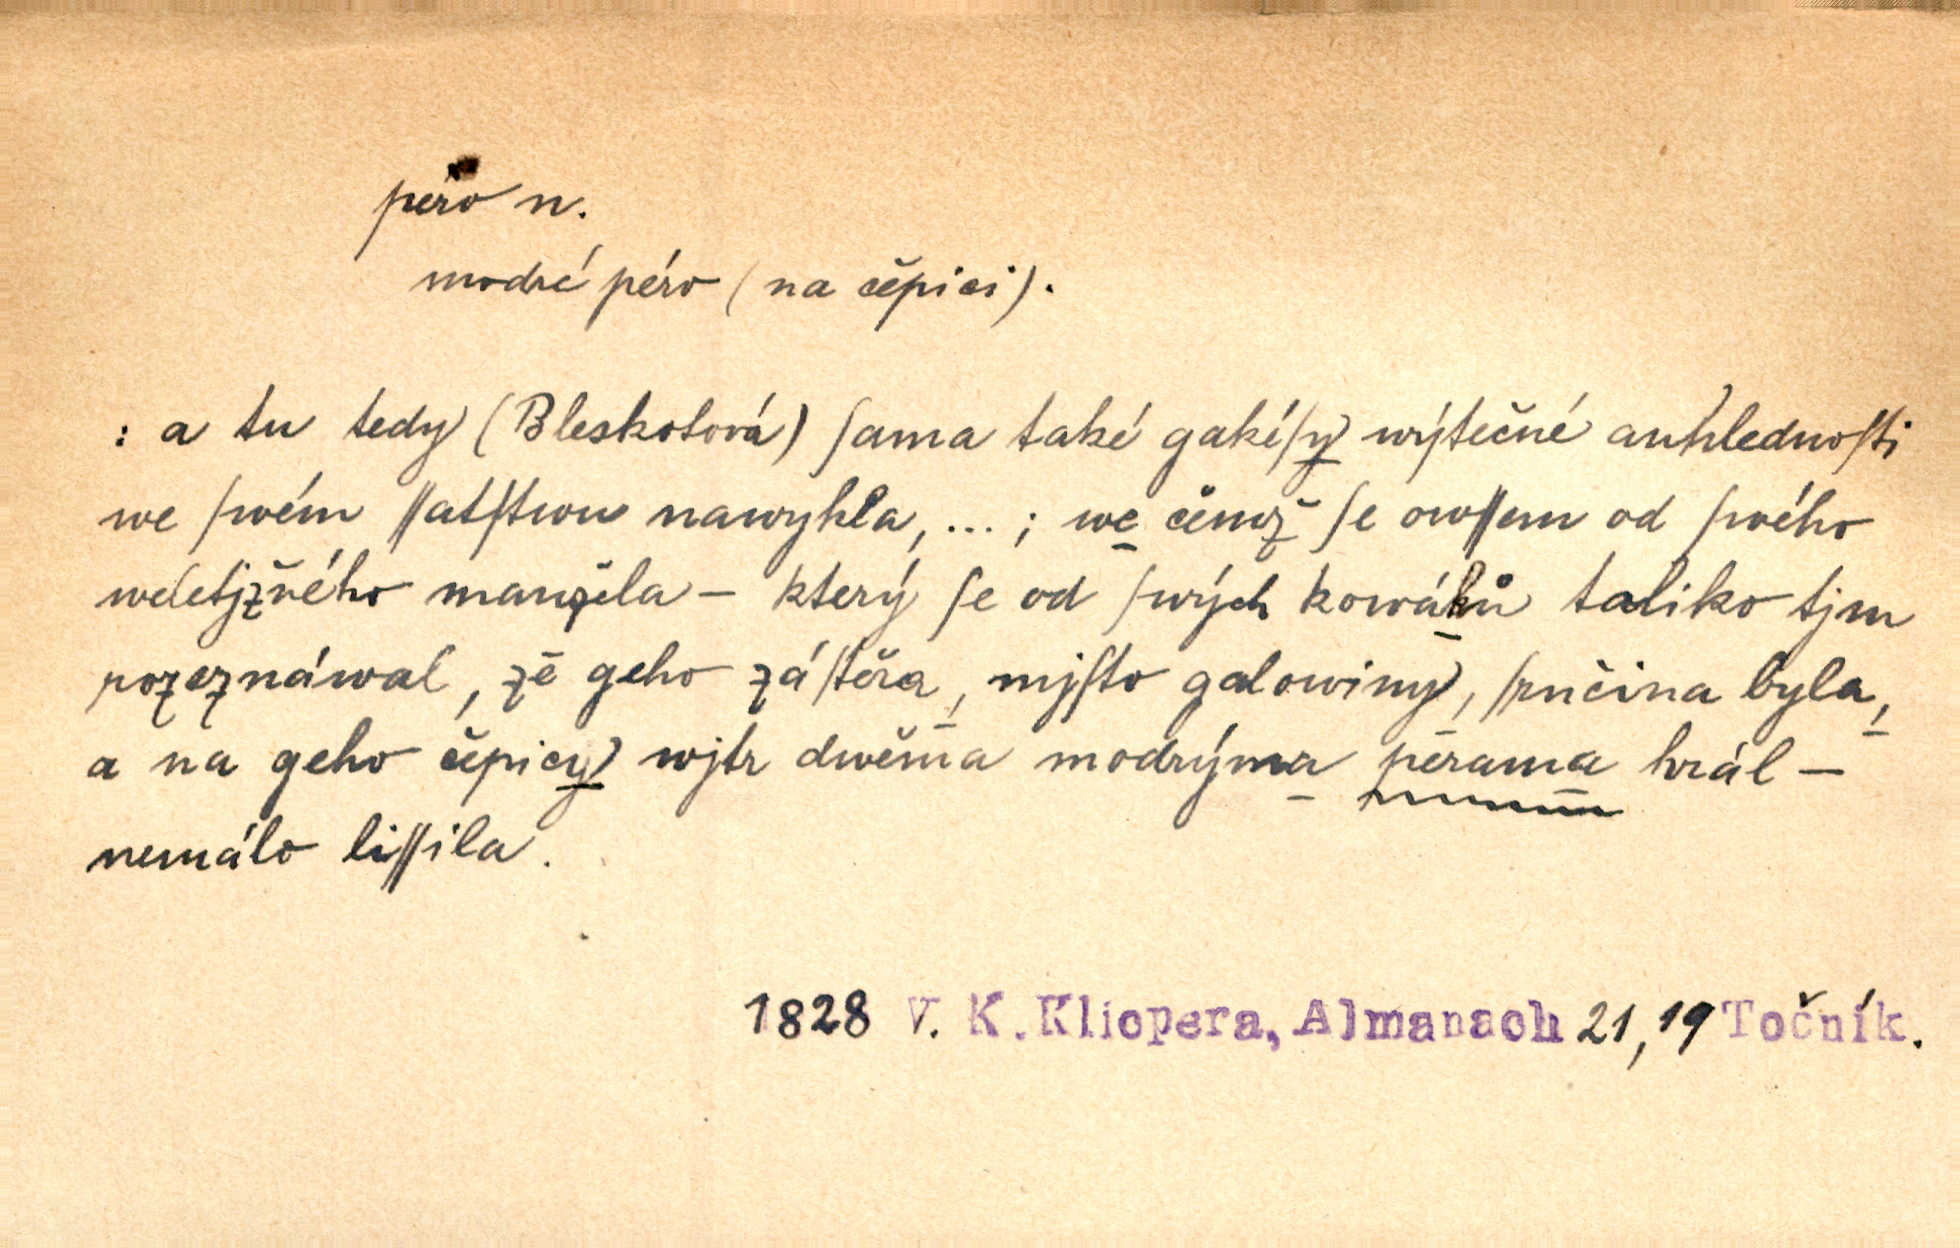 péro n.
modré péro (na čépici).
: a tu tedy (Bleskotová) ſama také gakéſy wýtečné auhlednoſti
we ſwém ſſatſtwu nawykla, ... ; we čemž ſe owſſem od ſwého
manžela – který ſe od ſwých kowáků toliko tjm
rozeznáwal, že geho záſtěra, mjſto galowiny, ſrnčina byla,
a na geho čepicy wjtr dwěma modrýma pérama hrál –
nemálo liſſila.
1828 V. K. Klicpera, Almanach 21, 19 Točník.